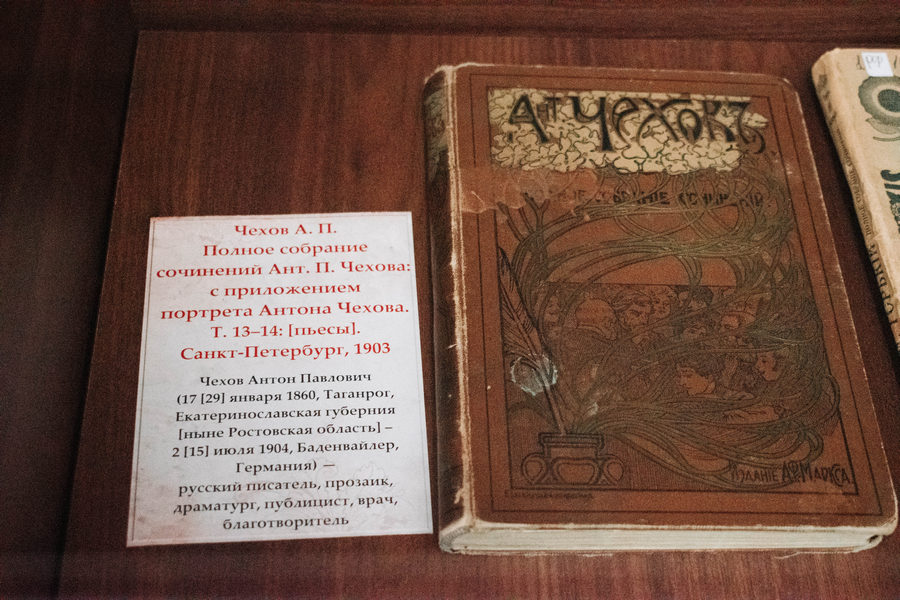 Чехов А. П.
Полное собрание
сочинений Ант. П. Чехова:
с приложением
портрета Антона Чехова.
Т. 13–14: [пьесы].
Санкт-Петербург, 1903
Чехов Антон Павлович
(17 [29] января 1860, Таганрог,
Екатеринославская губерния
[ныне Ростовская область] –
2 [15] июля 1904, Баденвайлер,
Германия) —
русский писатель, прозаик,
драматург, публицист, врач,
благотворитель
Ант Чеховъ
Изданіе А.Ф. Маркса.